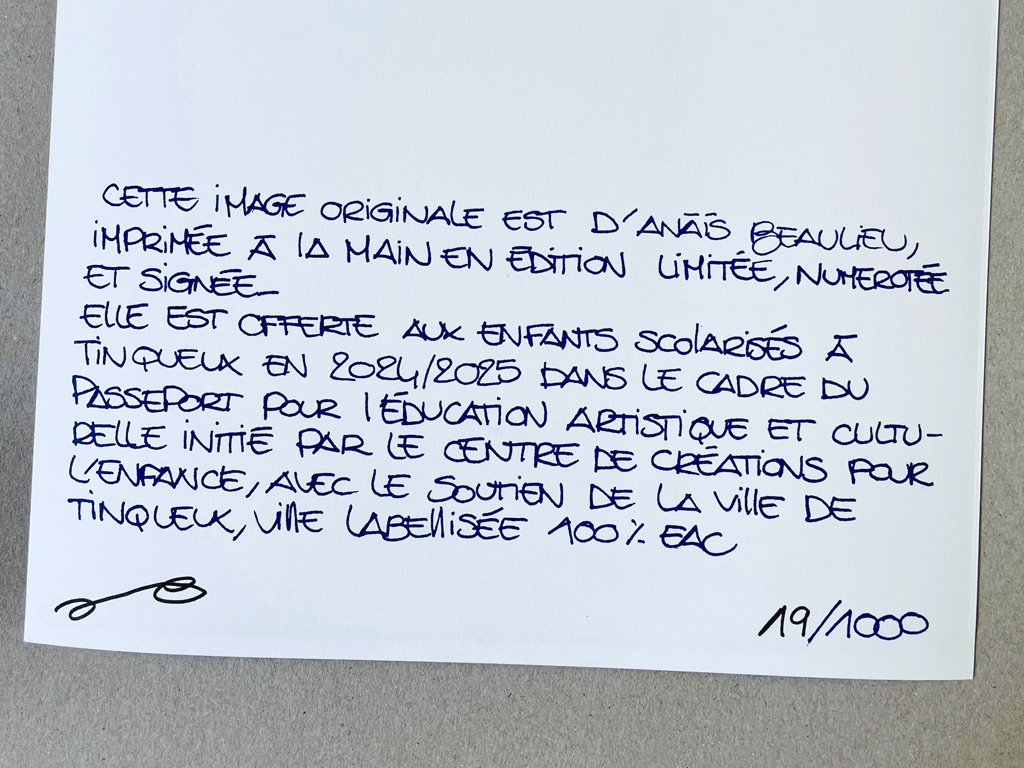 CETTE IMAGE ORIGINALE EST D'ANAÏS BEAULIEU,
IMPRIMÉE À LA MAIN EN ÉDITION LIMITÉE, NUMEROTÉE
ET SIGNÉE_
ELLE EST OFFERTE AUX ENFANTS SCOLARISÉS À
TINQUEUX EN 2024/2025 DANS LE CADRE DU
PASSEPORT POUR L'ÉDUCATION ARTISTIQUE ET CULTU-
RELLE INITIÉ PAR LE CENTRE DE CRÉATIONS POUR
L'ENFANCE, AVEC LE SOUTIEN DE LA VILLE DE
TINQUEUX, VILLE LABELLISÉE 100% EAC
19/1000